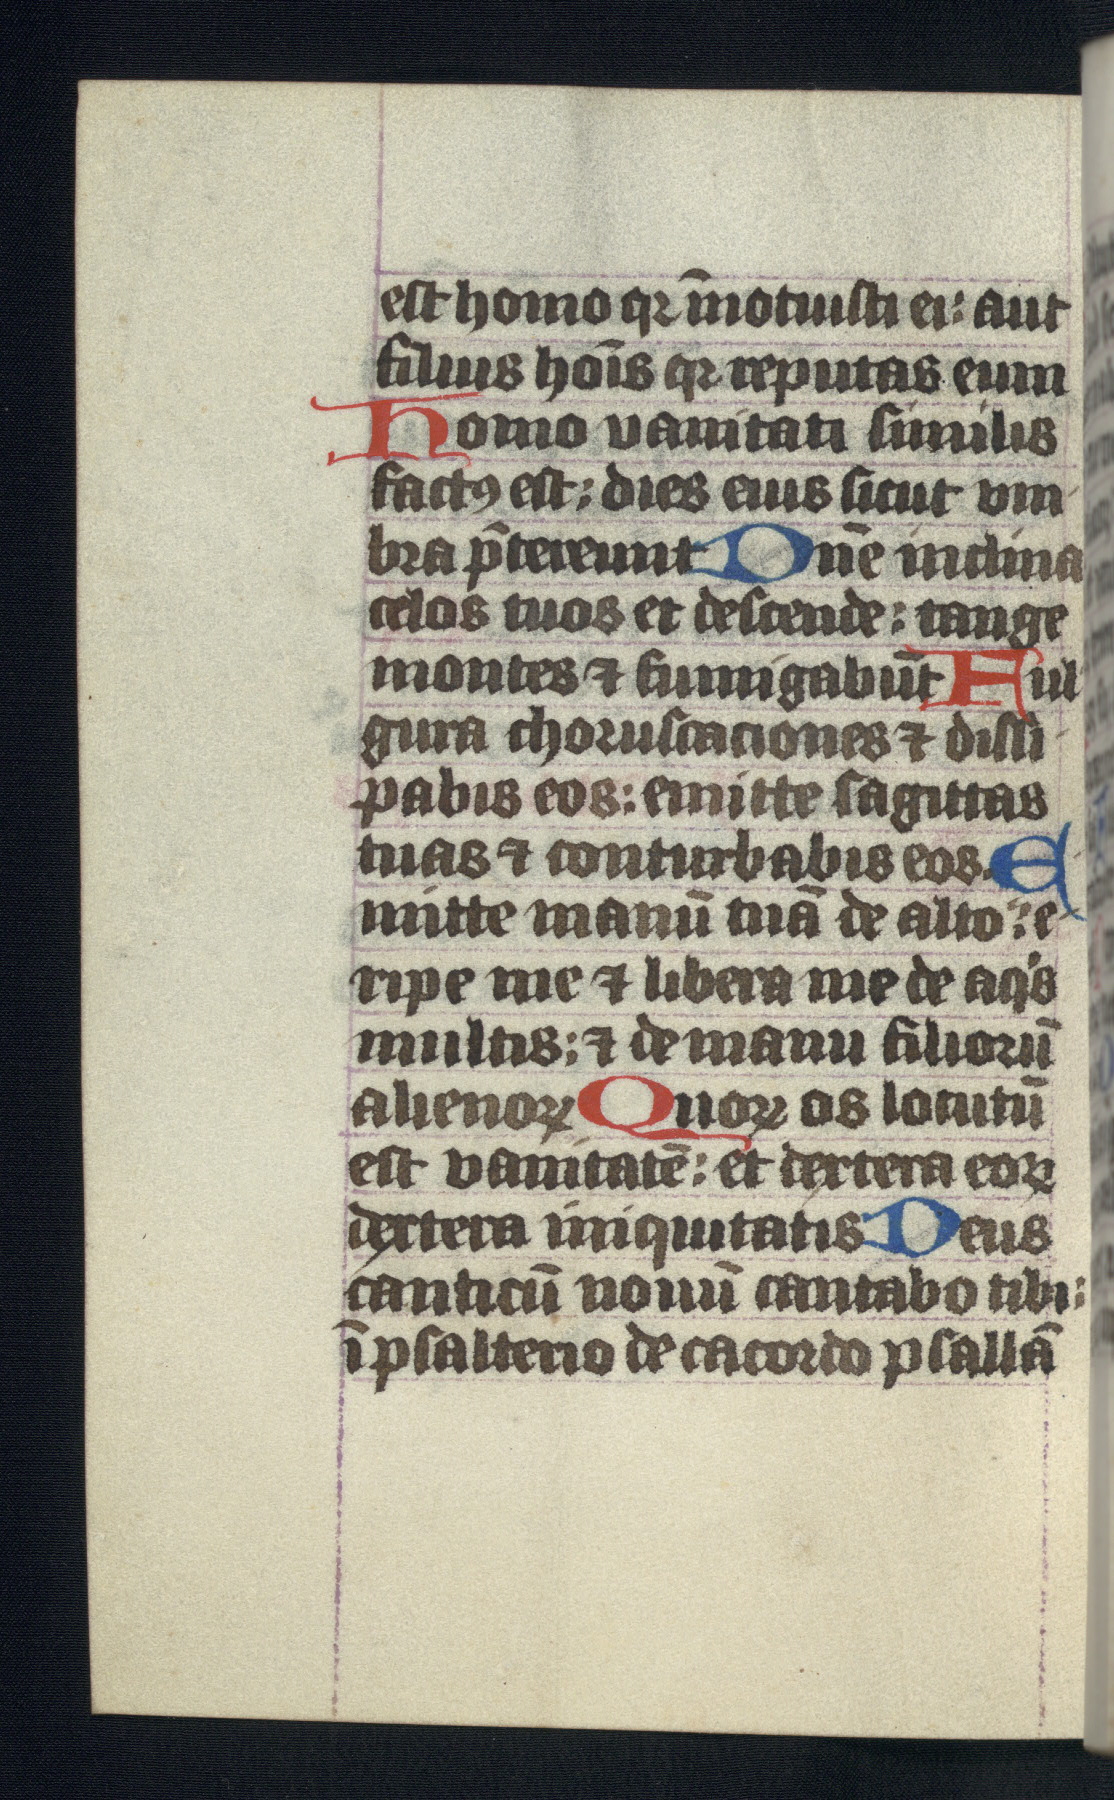 est homo qꝛ īnotuisti ei: aut
filius hoīs qꝛ reputas eum
Homo vanitati similis
factꝰ est: dies eius sicut vm
bra p̄tereunt Dn̄e inclina
celos tuos et descende: tange
montes ⁊ fumigabūt Ful
gura choruscaciones ⁊ dissi
pabis eos: emitte sagittas
tuas ⁊ conturbabis eos. E
mitte manū tuā de alto: e
ripe me ⁊ libera me de aqͥs
multis: ⁊ de manu filiorū
alienoꝝ Quoꝝ os locutū
est vanitatē: et dextera eoꝝ
dextera iniquitatis Deus
canticū nouū cantabo tibi:
ī psalterio de cacordo psallā